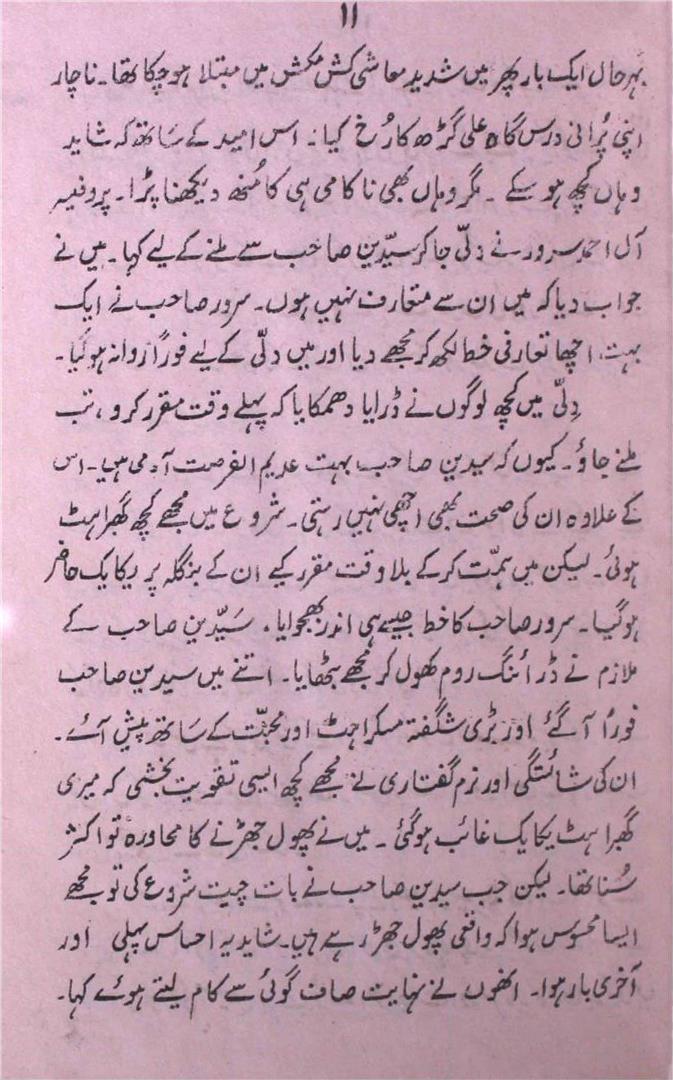 ۱۱
بہرحال ایک بار پھر میں شدید معاشی کش مکش میں مبتلا ہوچکا تھا۔ ناچار
اپنی پُرانی درس گاہ علی گڑھ کا رُخ کیا۔ اس امید کے ساتھ کہ شاید
وہاں کچھ ہوسکے ۔ مگر وہاں بھی ناکامی ہی کا مُنھ دیکھنا پڑا۔ پروفیسر
آل احمد سرور نے دلّی جاکر سیّدین صاحب سے ملنے کے لیے کہا۔ میں نے
جواب دیا کہ میں ان سے متعارف نہیں ہوں۔ سرور صاحب نے ایک
بہت اچھا تعارفی خط لکھ کر مجھے دیا اور میں دلّی کے لیے فوراً روانہ ہوگیا۔
دِلّی میں کچھ لوگوں نے ڈرایا دھمکایا کہ پہلے وقت مقرر کرو ، تب
ملنے جاؤ۔ کیوں کہ سیدین صاحب بہت عدیم الفرصت آدمی ہیں۔ اس
کے علاوہ ان کی صحت بھی اچھی نہیں رہتی۔ شروع میں مجھے کچھ گھبراہٹ
ہوئی۔ لیکن میں ہمّت کرکے بلا وقت مقرر کیے ان کے بنگلہ پر یکایک حاضر
ہوگیا۔ سرور صاحب کا خط جیسے ہی اندر بھجوایا، سَیّدین صاحب کے
ملازم نے ڈرائنگ روم کھول کر مجھے بٹھایا۔ اتنے میں سیدین صاحب
فوراً آگئے اور بڑی شگفتہ مسکراہٹ اور محبّت کے ساتھ پیش آئے۔
ان کی شائستگی اور نرم گفتاری نے مجھے کچھ ایسی تقویت بخشی کہ میری
گھبراہٹ یکایک غائب ہوگئی ۔ میں نے پھول جھڑنے کا محاورہ تو اکثر
سُنا تھا۔ لیکن جب سیدین صاحب نے بات چیت شروع کی تو مجھے
ایسا محسوس ہوا کہ واقعی پھول جھڑ رہے ہیں۔ شاید یہ احساس پہلی اور
آخری بار ہوا۔ انھوں نے نہایت صاف گوئی سے کام لیتے ہوئے کہا۔